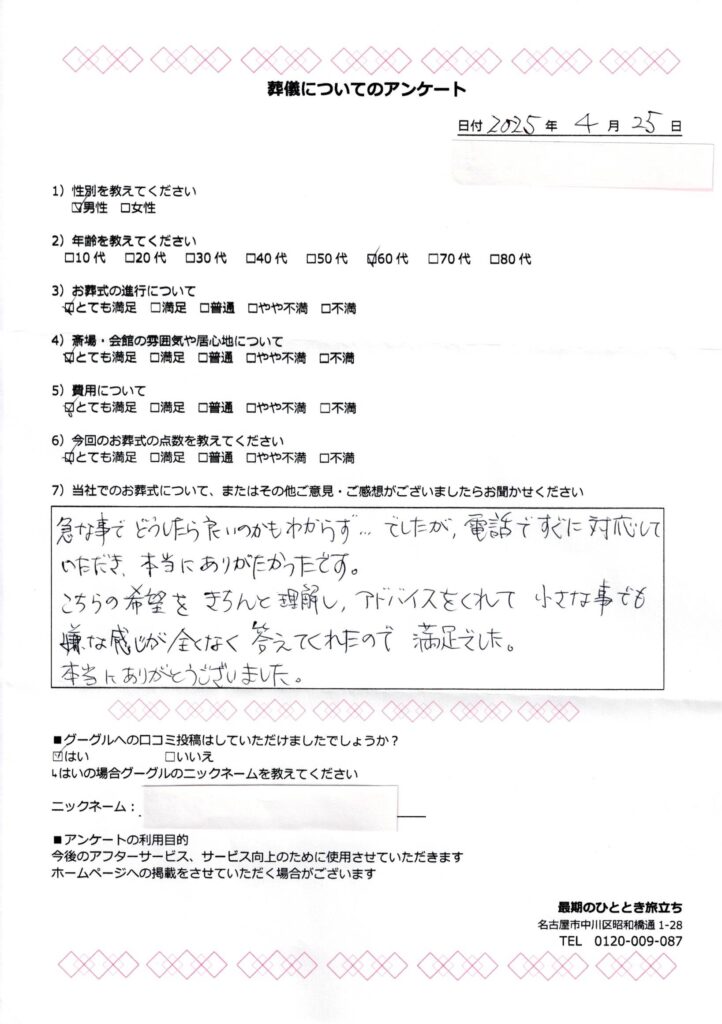 葬儀についてのアンケート
日付 2025 年 4 月 25 日
1）性別を教えてください
☑男性 □女性
2）年齢を教えてください
□10代 □20代 □30代 □40代 □50代 ☑60代 □70代 □80代
3）お葬式の進行について
☑とても満足 □満足 □普通 □やや不満 □不満
4）斎場・会館の雰囲気や居心地について
☑とても満足 □満足 □普通 □やや不満 □不満
5）費用について
☑とても満足 □満足 □普通 □やや不満 □不満
6）今回のお葬式の点数を教えてください
☑とても満足 □満足 □普通 □やや不満 □不満
7）当社でのお葬式について、またはその他ご意見・ご感想がございましたらお聞かせください
急な事で どうしたら良いのかもわからず… でしたが、電話ですぐに対応して
いただき、本当にありがたかったです。
こちらの希望を きちんと理解し、アドバイスをくれて 小さな事でも
嫌な感じが全くなく 答えてくれたので 満足でした。
本当にありがとうございました。
■グーグルへの口コミ投稿はしていただけましたでしょうか？
☑はい □いいえ
↳はいの場合グーグルのニックネームを教えてください
ニックネーム：
■アンケートの利用目的
今後のアフターサービス、サービス向上のために使用させていただきます
ホームページへの掲載をさせていただく場合がございます
最期のひととき旅立ち
名古屋市中川区昭和橋通 1-28
TEL 0120-009-087